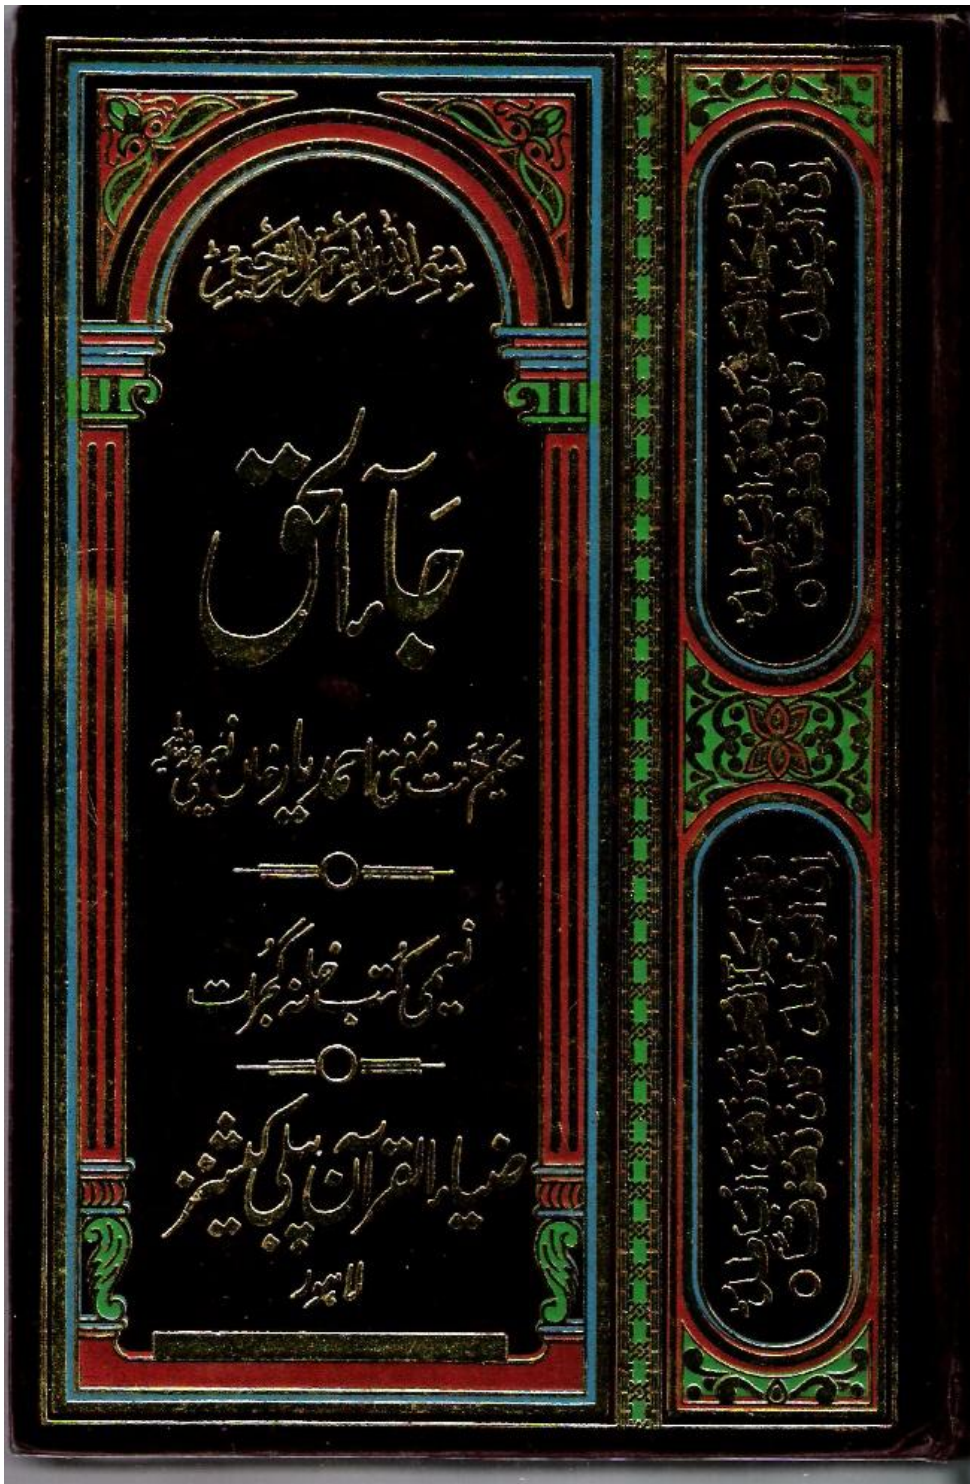 بِسْمِ اللهِ الرَّحْمٰنِ الرَّحِيْمِ
جَآءَ الحق
حکیم الامت مُفتی احمد یار خاں نعیمی رحمۃ اللہ علیہ
نعیمی کُتب خانہ گجرات
ضیاء القرآن پبلی کیشنز
لاہور
وَقُلْ جَآءَ الْحَقُّ وَزَهَقَ الْبَاطِلُ
اِنَّ الْبَاطِلَ كَانَ زَهُوْقًا ○
وَقُلْ جَآءَ الْحَقُّ وَزَهَقَ الْبَاطِلُ
اِنَّ الْبَاطِلَ كَانَ زَهُوْقًا ○